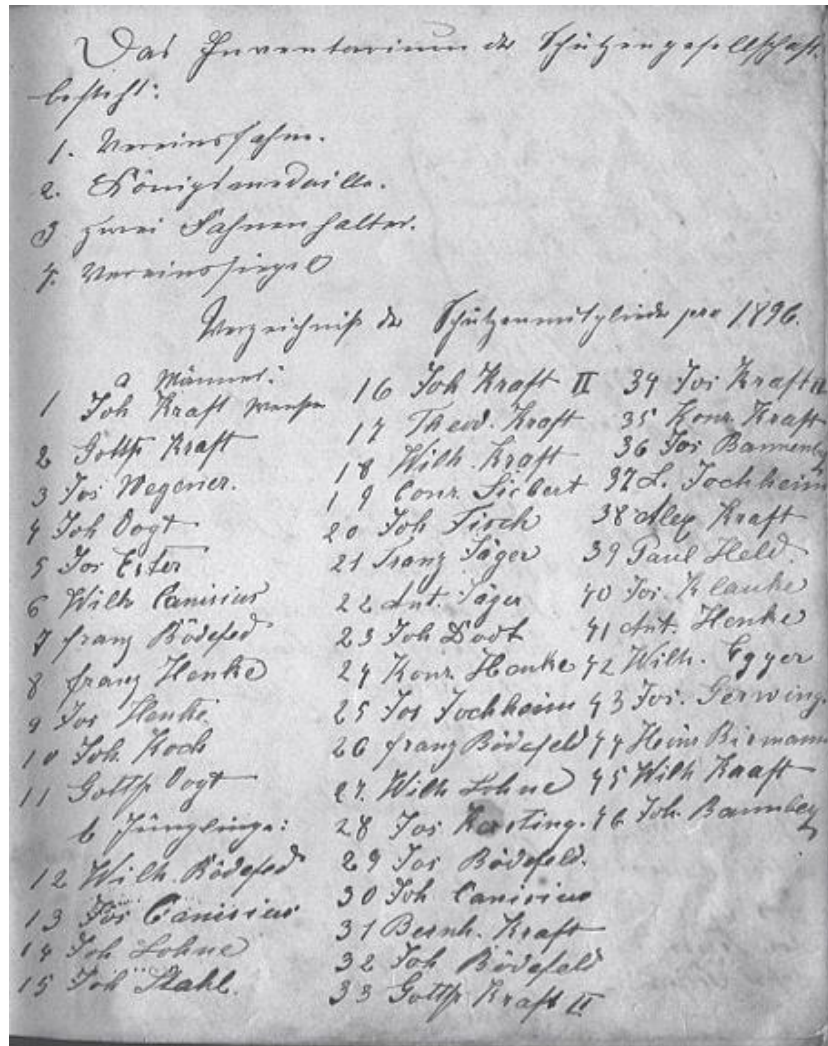 Das Inventarium der Schützengesellschaft
besteht:
1. Vereinsfahne.
2. Königsmedaille.
3 zwei Fahnenhalter.
4. Vereinssiegel
Verzeichniß der Schützenmitglieder pro 1896.
a Männer:
1 Joh Kraft
2 Gottfr Kraft
3 Jos Wegener.
4 Joh Vogt
5 Jos Ester
6 Wilh Canisius
7 franz Bödefed
8 franz Henke
9 Jos Henke.
10 Joh. Koch
11 Gottfr Vogt
b Jünglinge:
12 Wilh. Bödefed
13 Jos Canisius
14 Joh Lohne
15 Joh Stahl.
16 Joh Kraft II
17 Theod. Kraft
18 Wilh. Kraft
19 Conr. Siebert
20 Joh Fisch
21 Franz Jäger
22 Ant. Jäger
23 Joh Dodt
24 Konr. Henke
25 Jos Jochheim
26 franz Bödefeld
27. Wilh Lohne
28 Jos Kersting.
29 Jos Bödefeld.
30 Joh Canisius
31 Bernh. Kraft
32 Joh Bödefeld
33 Gottfr Kraft II
34 Jos Kraft II
35 Konr. Kraft
36 Jos Bannenbg
37 L. Jochheim
38 Alex Kraft
39 Paul Held.
40 Jos. Klauke
41 Ant. Henke
42 Wilh. Egger
43 Jos. Gerwing.
44 Heinr Birmann
45 Wilh Kraft
46 Joh. Bannbeg